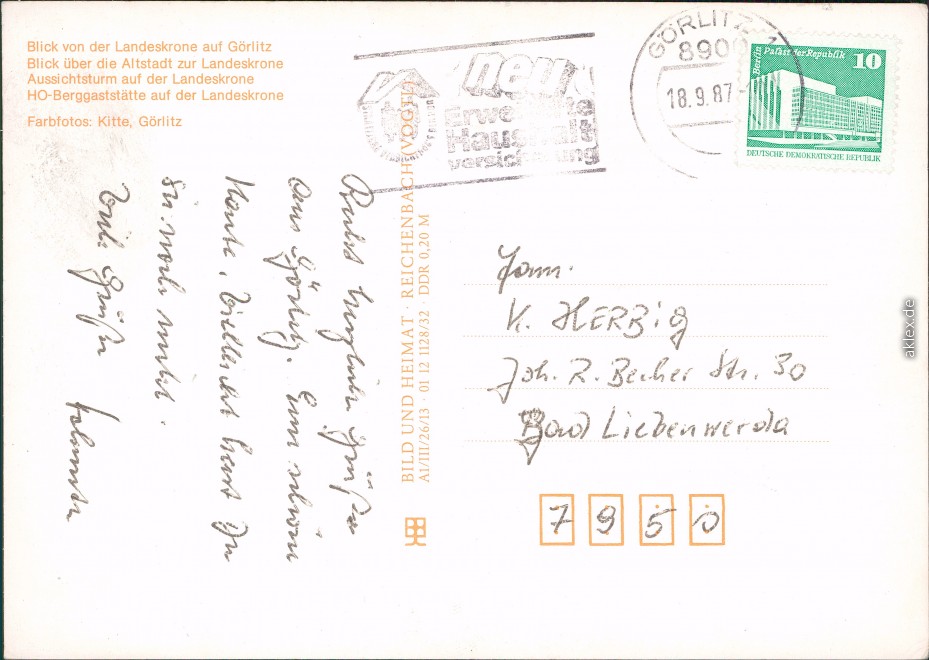 Blick von der Landeskrone auf Görlitz
Blick über die Altstadt zur Landeskrone
Aussichtsturm auf der Landeskrone
HO-Berggaststätte auf der Landeskrone
Farbfotos: Kitte, Görlitz
neu
Erweiterte
Haushalt-
versicherung
GÖRLITZ 1
8900
18.9.87-
Berlin Palast der Republik 10
DEUTSCHE DEMOKRATISCHE REPUBLIK
herzliche Grüße
aus Görlitz. Eine schöne
Karte, vielleicht hast Du
sie noch nicht.
Viele Grüße
BILD UND HEIMAT · REICHENBACH (VOGTL)
A1/III/26/13 · 01 12 1128/32 · DDR 0,20 M
Fam.
K. HERBIG
Joh. R. Becher Str. 30
Bad Liebenwerda
7950
aklex.de